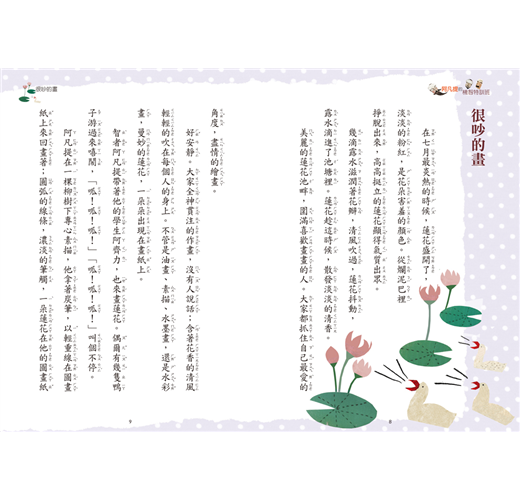 阿凡提的機智特訓班
很吵的畫
在七月最炎熱的時候，蓮花盛開了，
淡淡的粉紅，是花朵害羞的顏色。從爛泥巴裡
掙脫出來，高高挺立的蓮花顯得氣質出眾。
幾滴露水滋潤著花瓣，清風吹過，蓮花抖動，
露水滴進了池塘裡。蓮花趁這時候，散發淡淡的清香。
美麗的蓮花池畔，圍滿喜歡畫畫的人。大家都抓住自己最愛的
8
很吵的畫
角度，盡情的繪畫。
好安靜。大家全神貫注的作畫，沒有人說話；含著花香的清風
輕輕的吹在每個人的身上。不管是油畫、素描、水墨畫，還是水彩
畫，曼妙的蓮花，一朵朵出現在畫紙上。
智者阿凡提帶著他的學生阿齊力，也來畫蓮花。偶爾有幾隻鴨
子游過來嘻鬧，「呱！呱！呱！」「呱！呱！呱！」叫個不停。
阿凡提在一棵柳樹下專心素描。他拿著炭筆，以輕重線在圖畫
紙上來回畫著；圓弧的線條，濃淡的筆觸，一朵蓮花在他的圖畫紙
9